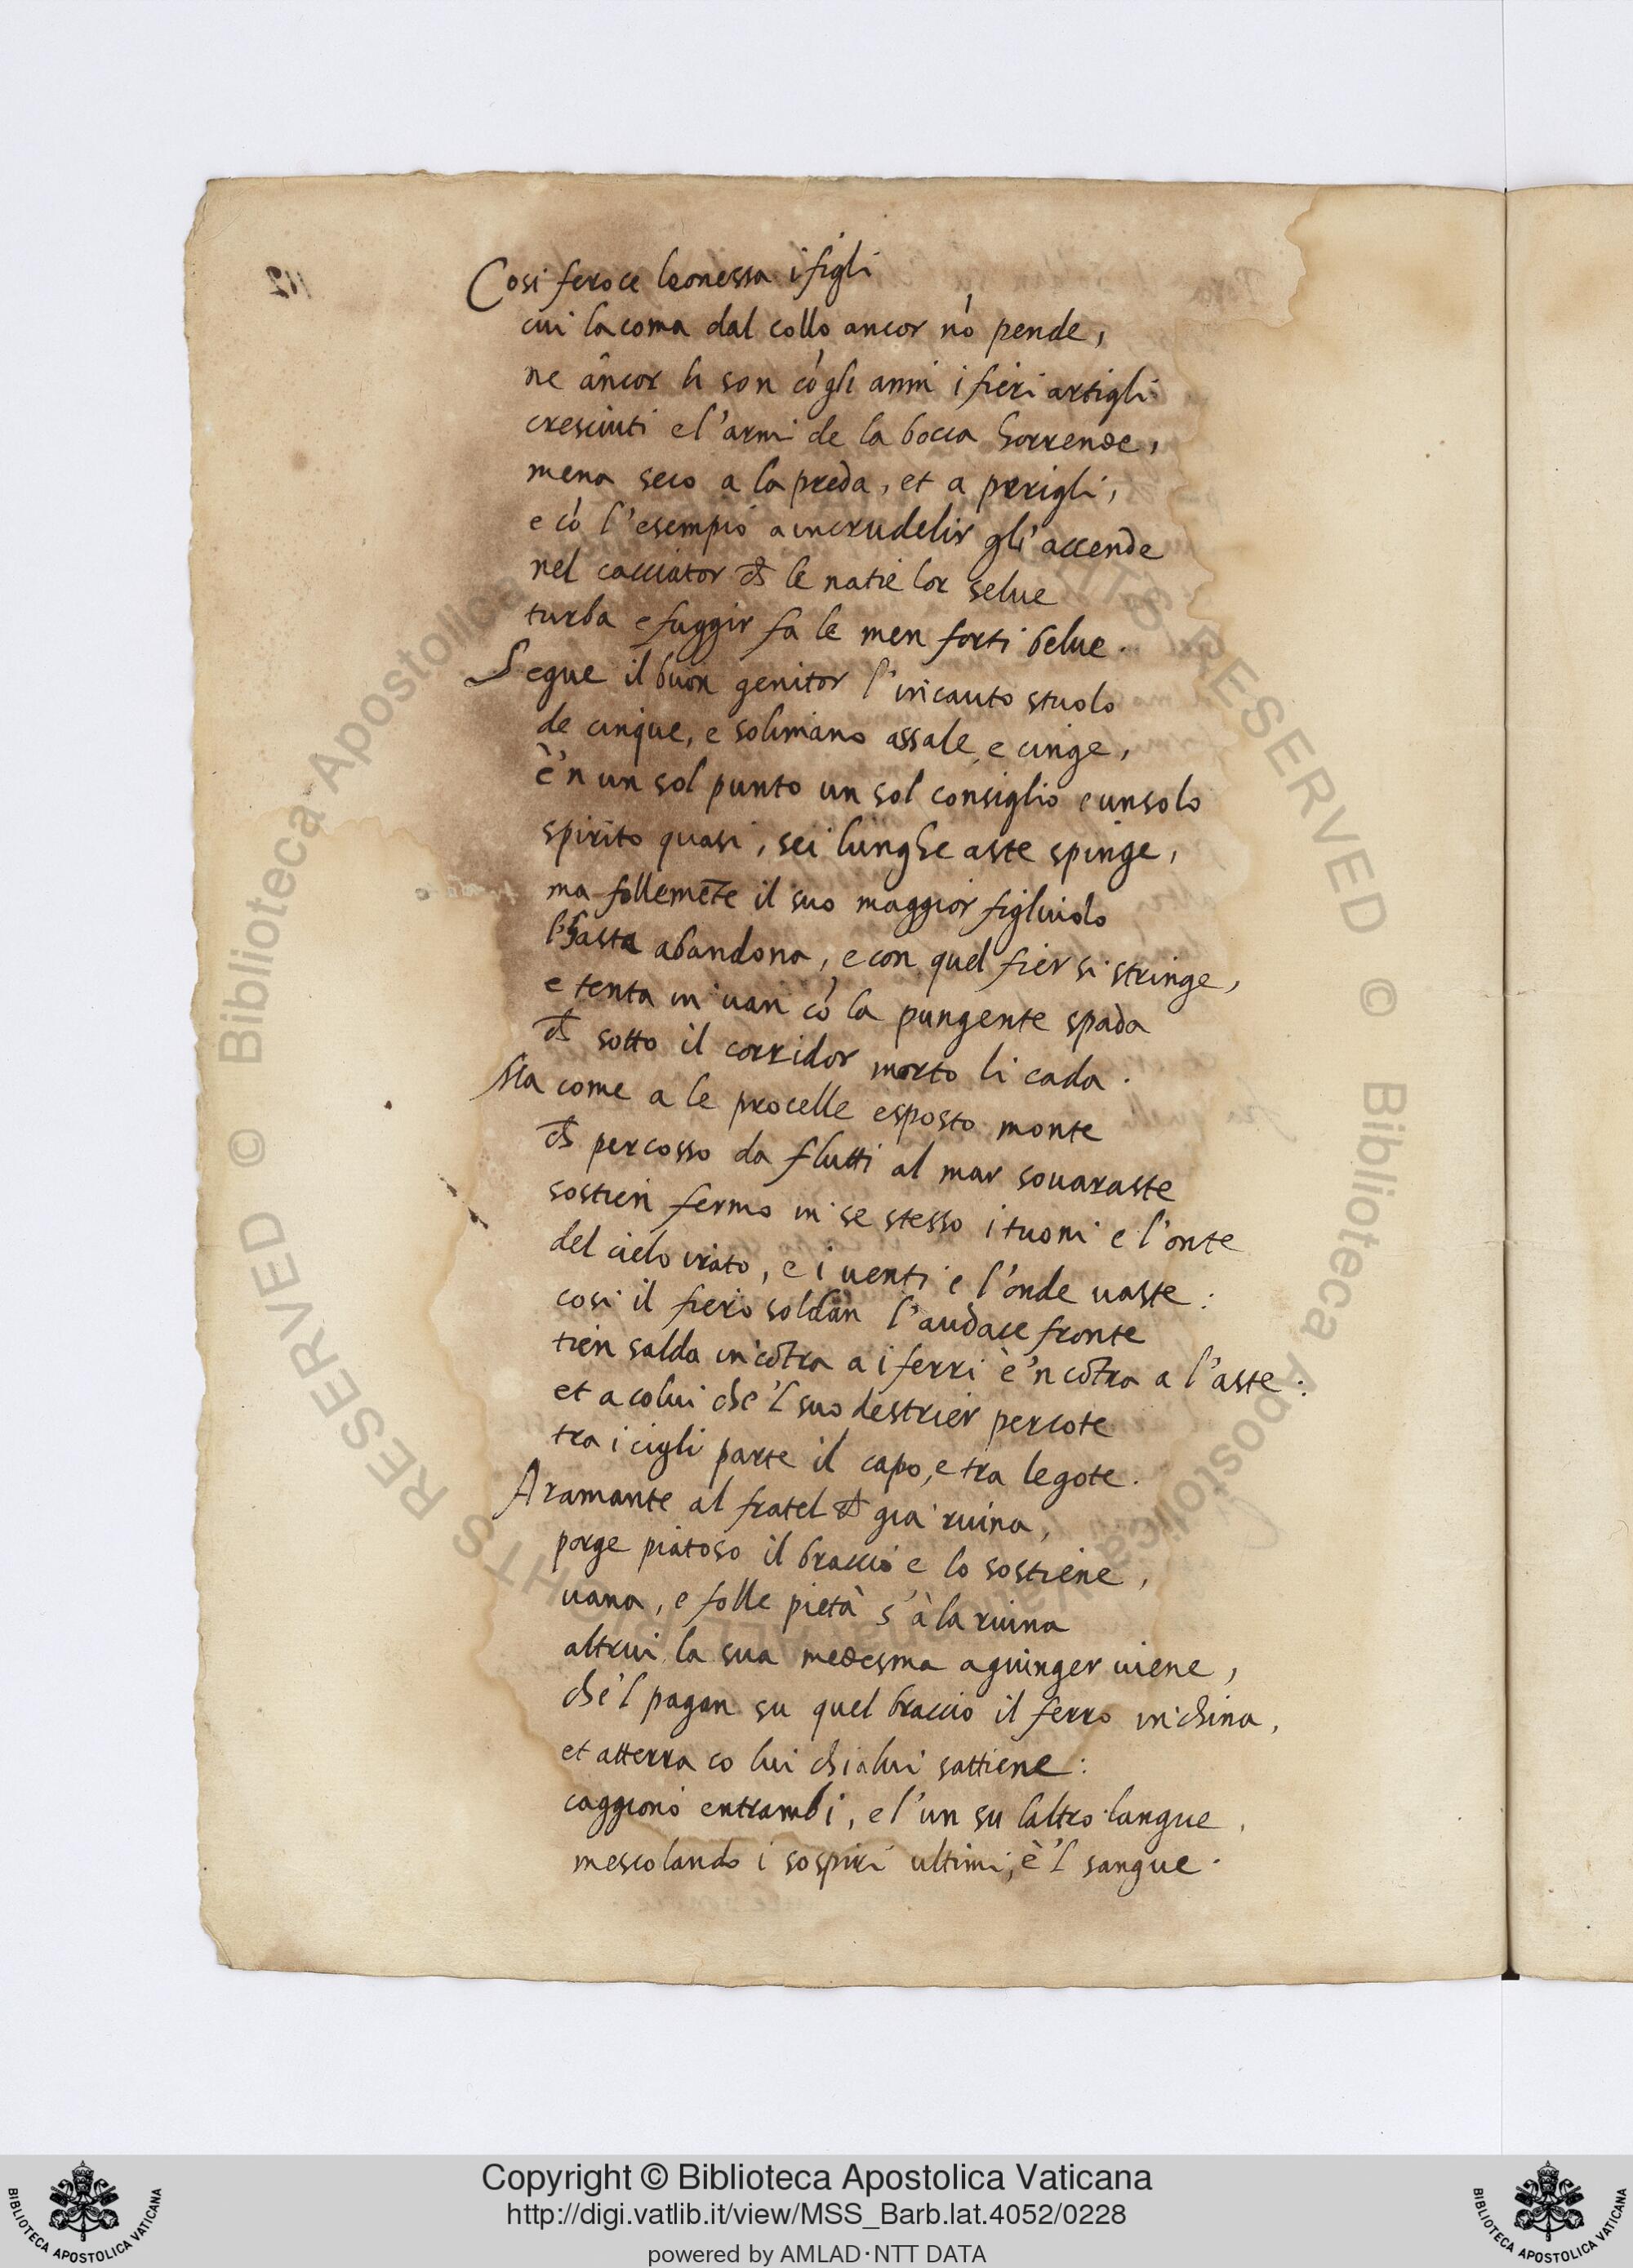 Cosi feroce leonessa i figli
cui la coma dal collo ancor nō pende,
ne ancor li son cō gli anni i fieri artigli
cresciuti e l'armi de la bocca horrende,
mena seco a la preda, et a perigli,
e cō l'esempio a incrudelir gli accende
nel cacciator ch̄ le natie lor selue
turba e fuggir fa le men forti belue.
Segue il buon genitor l'incauto stuolo
de cinque, e solimano assale e cinge,
è'n un sol punto un sol consiglio e un solo
spirito quasi, sei lunghe aste spinge,
ma follemēte il suo maggior figliuolo
l'hasta abandona, e con quel fier si stringe,
e tenta in van cō la pungente spada
ch̄ sotto il corridor morto li cada.
Ma come a le procelle esposto monte
ch̄ percosso da flutti al mar souraste
sostien fermo in se stesso i tuoni e l'onte
del cielo irato, e i uenti e l'onde uaste:
cosi il fiero soldan l'audace fronte
tien salda incōtra a i ferri è'ncōtra a l'aste:
et a colui che'l suo destrier percote
tra i cigli parte il capo, e tra le gote.
Aramante al fratel ch̄ gia ruina,
porge piatoso il braccio e lo sostiene,
uana, e folle pietà s'à la ruina
altrui la sua medesma a giunger uiene,
che'l pagan su quel braccio il ferro inchina,
et atterra co lui chi a lui sattiene:
caggiono entrambi, e l'un su laltro langue,
mescolando i sospiri ultimi, è'l sangue.
© Biblioteca Apostolica Vaticana ALL RIGHTS RESERVED © Biblioteca Apostolica Vaticana ALL RIGHTS RESERVED
Copyright © Biblioteca Apostolica Vaticana
http://digi.vatlib.it/view/MSS_Barb.lat.4052/0228
powered by AMLAD·NTT DATA
BIBLIOTECA APOSTOLICA VATICANA
BIBLIOTECA APOSTOLICA VATICANA